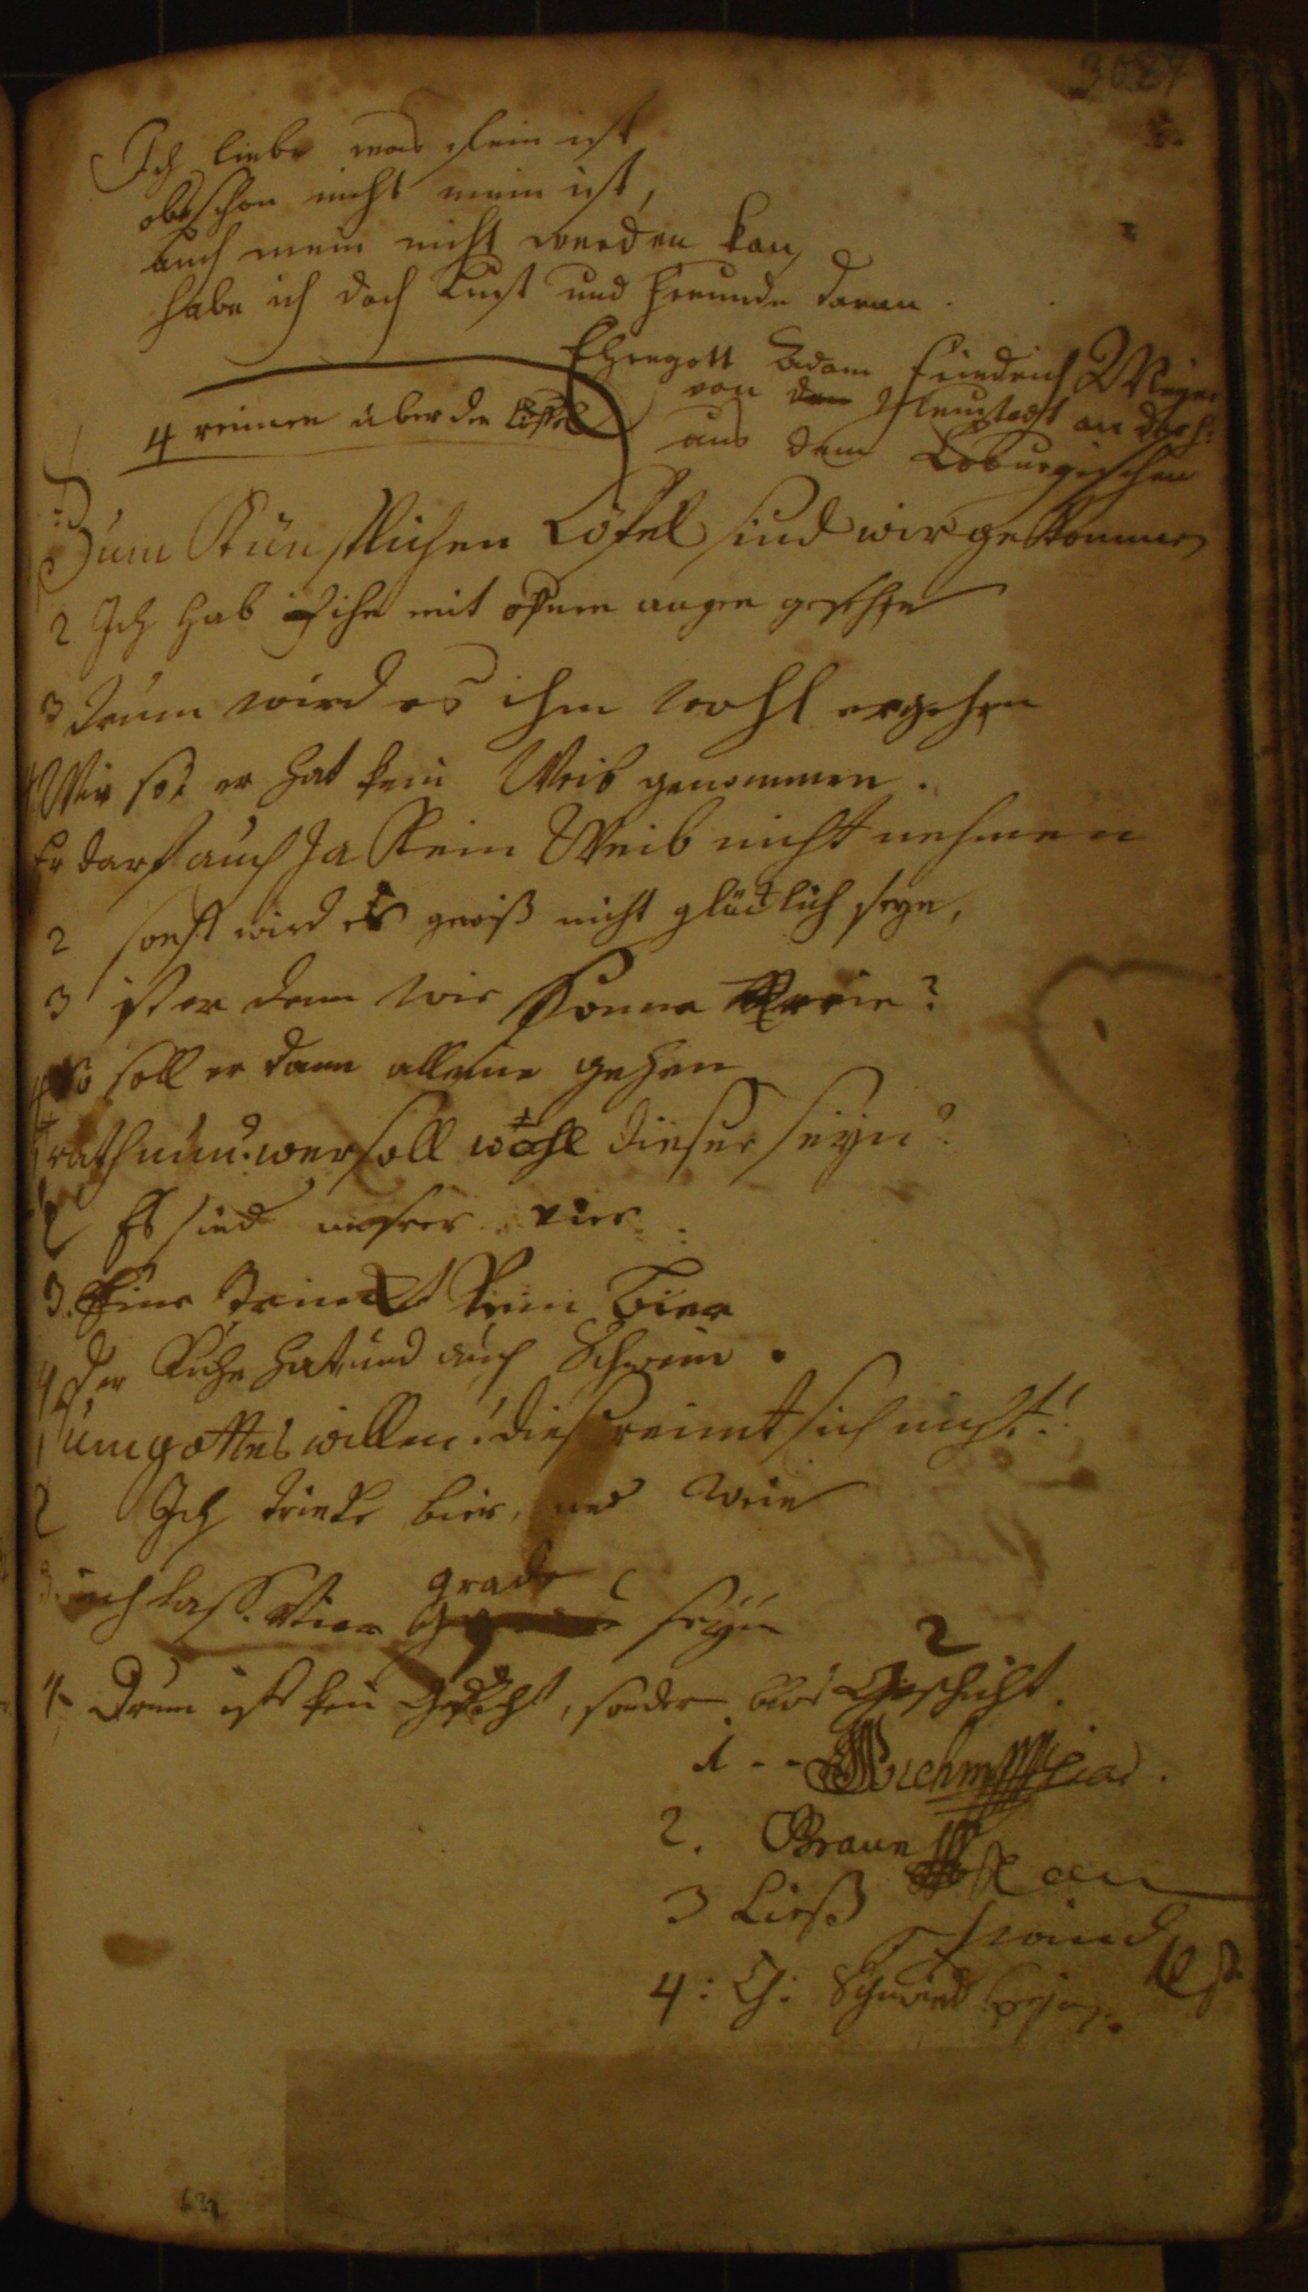 3087
Ich liebe was fein ist
obschon nicht mein ist,
auch mein nicht werden kan,
habe ich doch Lust und Freunde daran.
Ehregott Adam Friedrich Meyer
von Neustadt an der H:
aus dem Coburgischen
4 reimen uber den Löffel
Zum Künstlichen Löfel sind wir gekommen
2 Ich hab ihn mit ofnen augen gesehen
3 drum wird es ihm wohl ergehen
4 Wie so? er hat kein Weib genommen.
Er darf auch Ja Kein Weib nicht nehmen
2 sonst wird es gewiß nicht glücklich seyn,
3 ist er denn wie
4 so soll er dann alleine gehen
1 rath nun wer soll wohl dieser seyn?
2 Es sind unser vier
3. Einer trinckt kein Bier
4 Der Kühe hat und auch Schwein.
1 um gottes willen! dieß reimt sich nicht!
2 Ich trinke bier, und Wein
3. ich laß. Vier grade seyn
4. Drum ists kein Gedicht, sonder Geschicht.
2
1 --
2. Braun
3 Ließ
4: Ch: Schmied